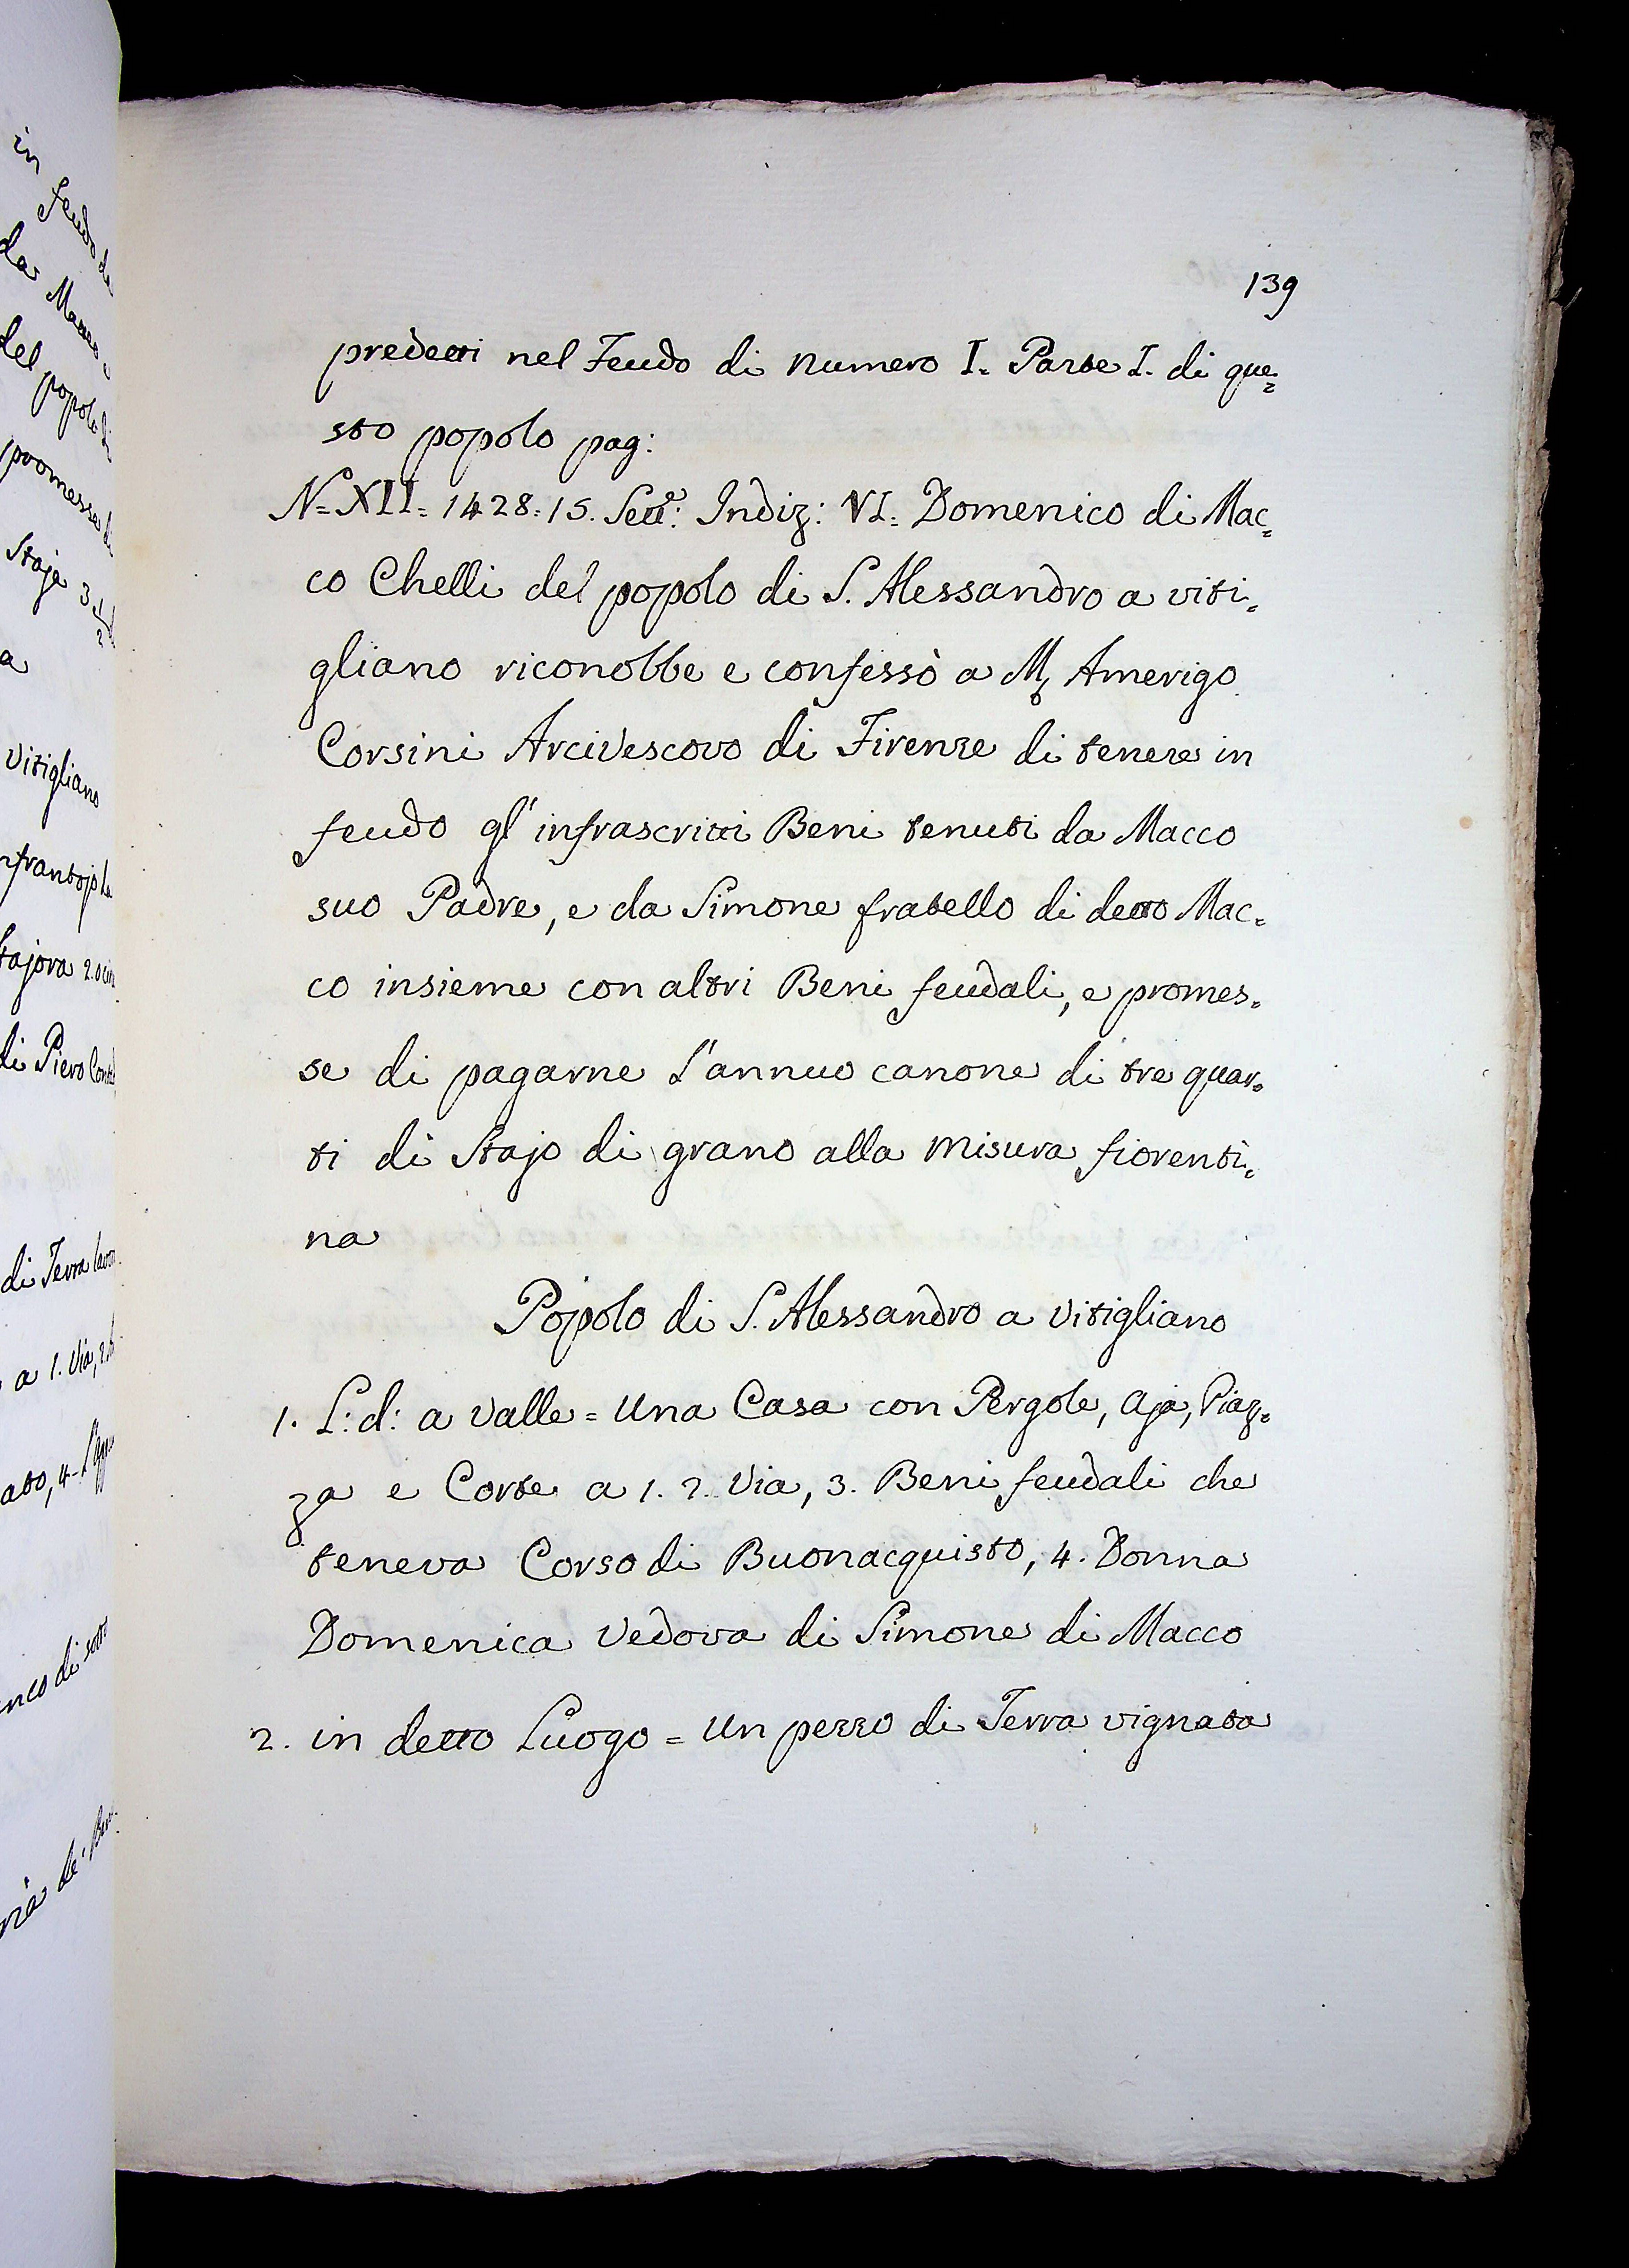 139
predetti nel Feudo di numero I. Parte I. di que=
sto popolo pag:
N=XII= 1428=15. Sett:e Indiz: VI= Domenico di Mac=
co Chelli del popolo di S. Alessandro a viti=
gliano riconobbe e confessò a M. Amerigo
Corsini Arcivescovo di Firenze di tenere in
feudo gl' infrascritti Beni tenuti da Macco
suo Padre, e da Simone fratello di detto Mac=
co insieme con altri Beni feudali, e promes=
se di pagarne l'annuo canone di tre quar=
ti di Stajo di grano alla misura fiorenti=
na
Popolo di S. Alessandro a Vitigliano
1. L:d: a Valle = Una Casa con Pergole, Aja, Piaz=
za e Corte a 1. 2. Via, 3. Beni feudali che
teneva Corso di Buonacquisto, 4. Donna
Domenica Vedova di Simone di Macco
2. in detto Luogo = Un pezzo di Terra vignata
in feudo
del popolo di
promesse di
Staja 3 1/2
a
Vitigliano
Stajora 2.
di Piero
di Terra
a 1. Via, 2.